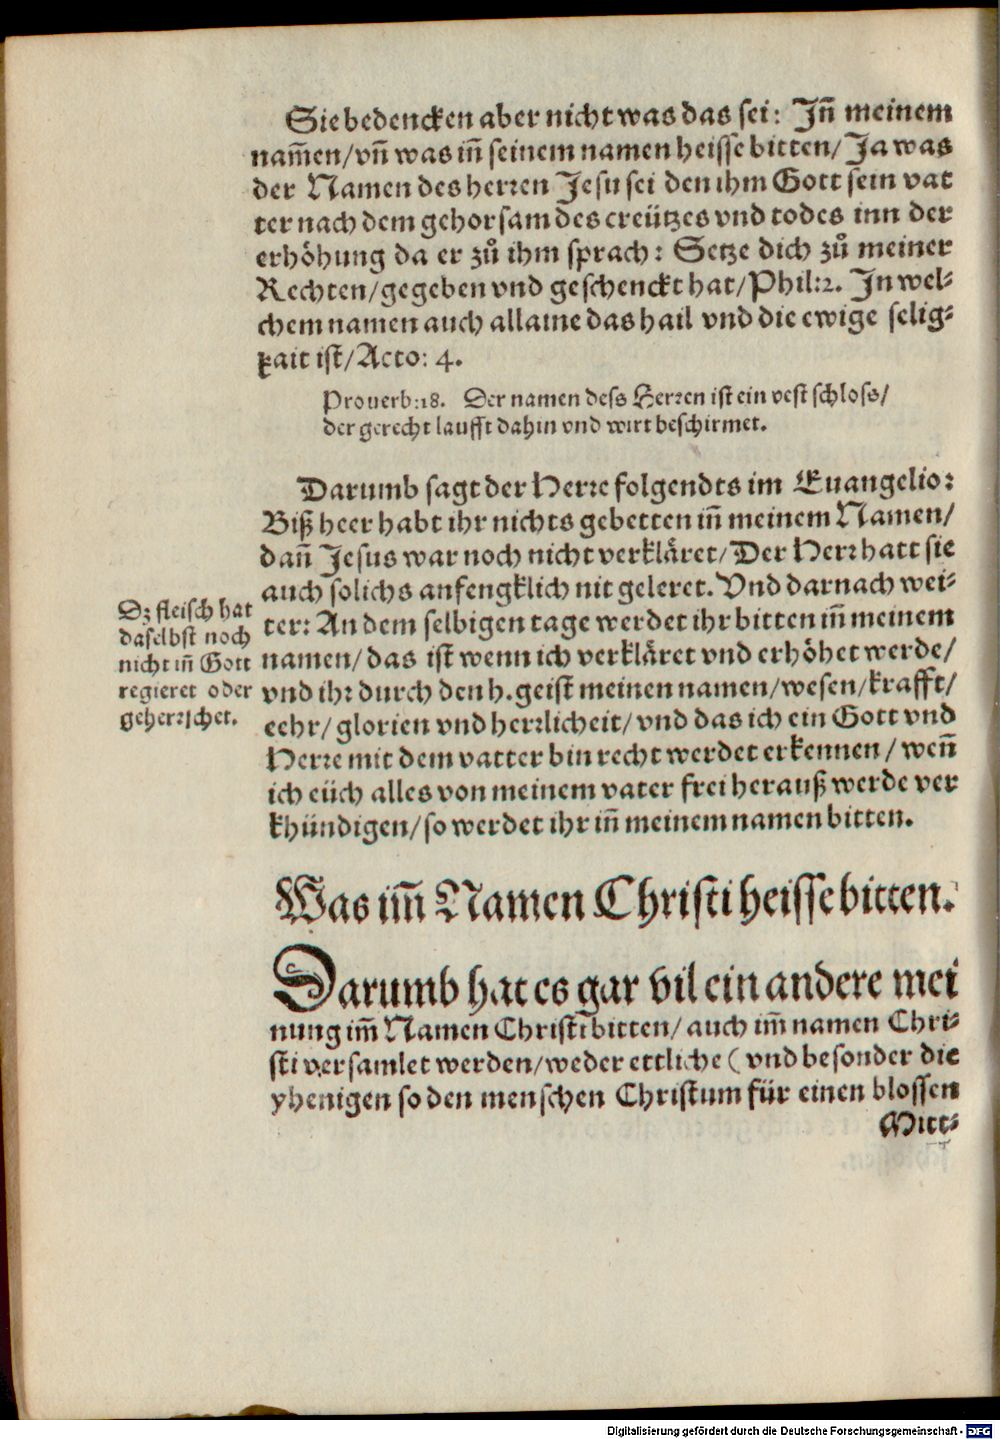 Sie bedencken aber nicht was das sei: Jn̄ meinem
nam̄en/vn̄ was in̄ seinem namen heisse bitten/Ja was
der Namen des herren Jesu sei den ihm Gott sein vat
ter nach dem gehorsam des creützes vnd todes inn der
erhöhung da er zů ihm sprach: Setze dich zů meiner
Rechten/gegeben vnd geschenckt hat/Phil:2. Jn wel⸗
chem namen auch allaine das hail vnd die ewige selig⸗
kait ist/Acto: 4.
Prouerb:18. Der namen dess Herren ist ein vest schloss/
der gerecht laufft dahin vnd wirt beschirmet.
Darumb sagt der Herre folgendts im Euangelio:
Biß heer habt ihr nichts gebetten in̄ meinem Namen/
dan̄ Jesus war noch nicht verkläret/Der Herr hatt sie
auch solichs anfengklich nit geleret. Vnd darnach wei⸗
ter: An dem selbigen tage werdet ihr bitten in̄ meinem
namen/das ist wenn ich verkläret vnd erhöhet werde/
vnd ihr durch den h. geist meinen namen/wesen/krafft/
eehr/glorien vnd herrlicheit/vnd das ich ein Gott vnd
Herre mit dem vatter bin recht werdet erkennen/wen̄
ich eüch alles von meinem vater frei herauß werde ver
khündigen/so werdet ihr in̄ meinem namen bitten.
Dz fleisch hat
daselbst noch
nicht in̄ Gott
regieret oder
geherrschet.
Was im̄ Namen Christi heisse bitten.
Darumb hat es gar vil ein andere mei
nung im̄ Namen Christi bitten/auch im̄ namen Chri⸗
sti versamlet werden/weder ettliche (vnd besonder die
yhenigen so den menschen Christum für einen blossen
Mitt⸗
Digitalisierung gefördert durch die Deutsche Forschungsgemeinschaft - DFG